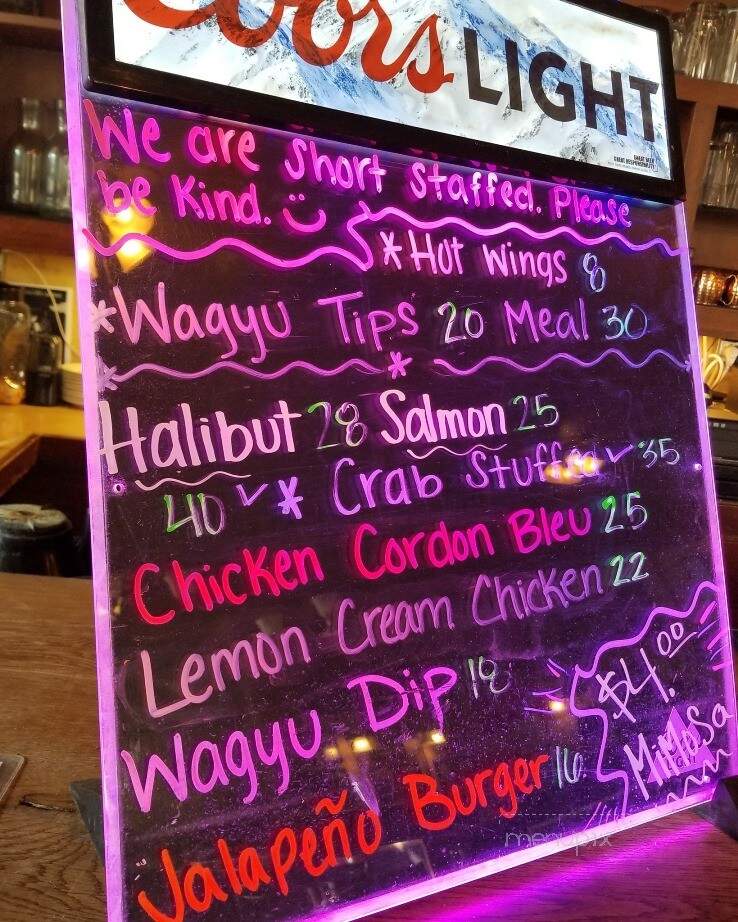 Coors LIGHT
We are Short Staffed. Please
be Kind.
*Hot Wings 8
*Wagyu Tips 20 Meal 30
*
Halibut 28 Salmon 25
40 ✓ * Crab Stuffed ✓ 35
Chicken Cordon Bleu 25
Lemon Cream Chicken 22
Wagyu Dip 18
$4.00
MiMoSa
Jalapeño Burger 16
menupix